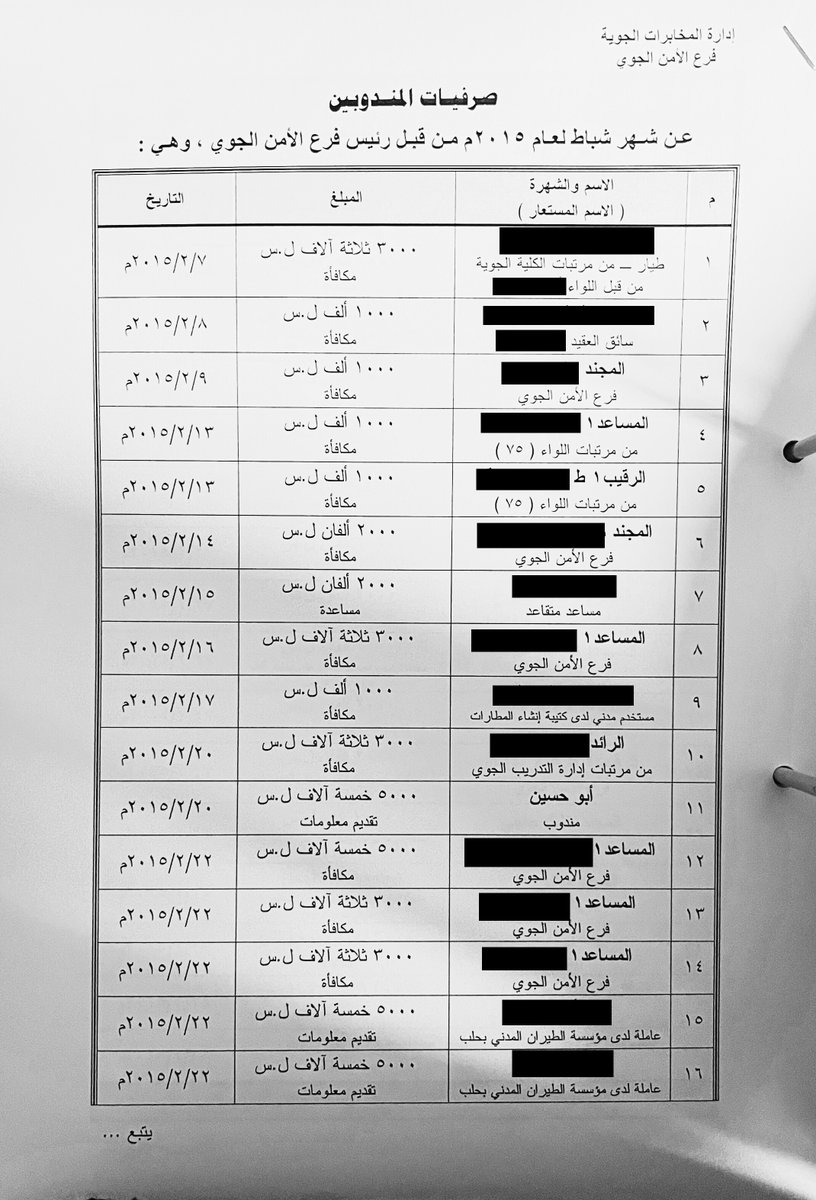 إدارة المخابرات الجوية
فرع الأمن الجوي
صرفيات المندوبين
عن شهر شباط لعام ٢٠١٥م من قبل رئيس فرع الأمن الجوي ، وهي :
م	الاسم والشهرة	المبلغ	التاريخ
( الاسم المستعار )
١	٣٠٠٠ ثلاثة آلاف ل.س	٢٠١٥/٢/٧م
طيار – من مرتبات الكلية الجوية	مكافأة
من قبل اللواء
٢	١٠٠٠ ألف ل.س	٢٠١٥/٢/٨م
سائق العقيد	مكافأة
٣	المجند	١٠٠٠ ألف ل.س	٢٠١٥/٢/٩م
فرع الأمن الجوي	مكافأة
٤	المساعد١	١٠٠٠ ألف ل.س	٢٠١٥/٢/١٣م
من مرتبات اللواء ( ٧٥ )	مكافأة
٥	الرقيب١ ط	١٠٠٠ ألف ل.س	٢٠١٥/٢/١٣م
من مرتبات اللواء ( ٧٥ )	مكافأة
٦	المجند	٢٠٠٠ ألفان ل.س	٢٠١٥/٢/١٤م
فرع الأمن الجوي	مكافأة
٧	٢٠٠٠ ألفان ل.س	٢٠١٥/٢/١٥م
مساعد متقاعد	مساعدة
٨	المساعد١	٣٠٠٠ ثلاثة آلاف ل.س	٢٠١٥/٢/١٦م
فرع الأمن الجوي	مكافأة
٩	١٠٠٠ ألف ل.س	٢٠١٥/٢/١٧م
مستخدم مدني لدى كتيبة إنشاء المطارات	مكافأة
١٠	الرائد	٣٠٠٠ ثلاثة آلاف ل.س	٢٠١٥/٢/٢٠م
من مرتبات إدارة التدريب الجوي	مكافأة
١١	أبو حسين	٥٠٠٠ خمسة آلاف ل.س	٢٠١٥/٢/٢٠م
مندوب	تقديم معلومات
١٢	المساعد١	٥٠٠٠ خمسة آلاف ل.س	٢٠١٥/٢/٢٢م
فرع الأمن الجوي	مكافأة
١٣	المساعد١	٣٠٠٠ ثلاثة آلاف ل.س	٢٠١٥/٢/٢٢م
فرع الأمن الجوي	مكافأة
١٤	المساعد١	٣٠٠٠ ثلاثة آلاف ل.س	٢٠١٥/٢/٢٢م
فرع الأمن الجوي	مكافأة
١٥	٥٠٠٠ خمسة آلاف ل.س	٢٠١٥/٢/٢٢م
عاملة لدى مؤسسة الطيران المدني بحلب	تقديم معلومات
١٦	٥٠٠٠ خمسة آلاف ل.س	٢٠١٥/٢/٢٢م
عاملة لدى مؤسسة الطيران المدني بحلب	تقديم معلومات
يتبع ...